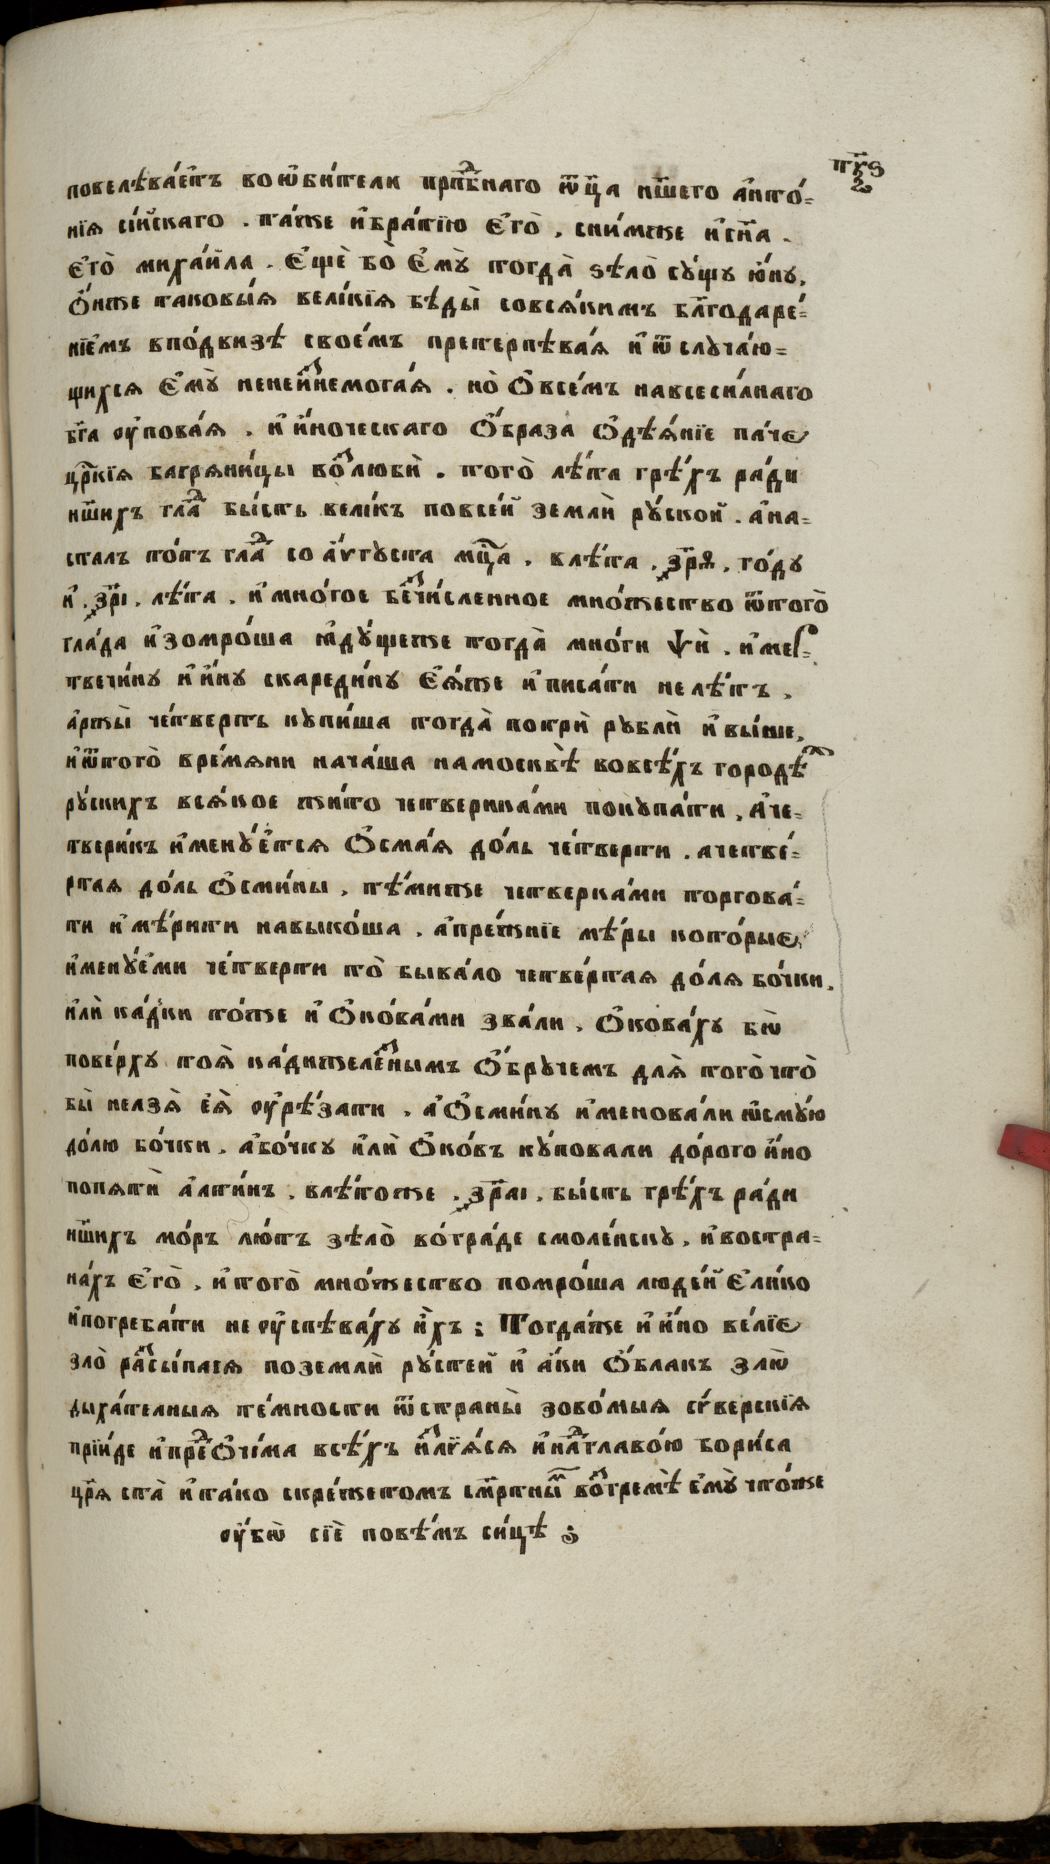 повелѣва́етъ воѡби́тели прпⷣбнаго ѡ҃ца нш҃его анто́-
нїя сі́йскаго . та́же и҆бра́тїю є҆го̀ , сни́мже и҆сн҃а .
є҆го̀ миха́ила . є҆щѐ бо̀ є҆мꙋ̀ тогда̀ ѕѣло̀ сꙋ́щꙋ ю҆́нꙋ ,
ѻ҆́нже таковы́я вели́кїя бѣды̀ совся́кимъ бл҃годаре́-
нїемъ впо́двизѣ свое́мъ претерпѣва́я и҆ ѿ слꙋча́ю-
щихся є҆мꙋ̀ неней҆немога́я . но̀ ѻ҆всѐмъ навсеси́лнаго
бг҃а ᲂу҆пова́я . и҆ и҆́ноческаго ѻ҆́браза ѻ҆дѣя́нїе па́че
цр҃кїя багряни́цы воⷥлюбѝ . того̀ лѣ́та грѣ́хъ ра́ди
нш҃ихъ глаⷣ бы́сть вели́къ повсе́й землѝ рꙋ́ской . а҆на-
сталъ то́тъ глаⷣ со а҆́ѵгꙋста мц҃а , влѣ́та , ҂зр҃ѳ , го́дꙋ
и҆ , ҂зр҃і , лѣ́та . и҆мно́гое беⷥчи́сленное мно́жество ѿтого̀
гла́да и҆зомро́ша ꙗ҆дꙋ́щеже тогда̀ мно́ги ѱѝ . и҆мер-
твечи́нꙋ и҆ и҆́нꙋ скареди́нꙋ є҆ѧ́же и҆ писа́ти не лѣ́ть ,
а҆ржы̀ че́тверть кꙋпи́ша тогда̀ потрѝ рꙋблѝ и҆вы́ше ,
и҆ѿтого̀ вре́мяни нача́ша намосквѣ̀ вовсѣ́хъ городѣⷯ
рꙋ́скихъ вся́кое жи́то четверика́ми покꙋпа́ти , а҆че-
твери́къ и҆менꙋ́ется ѻ҆сма́я до́ль че́тверти . ачетве́-
ртая до́ль ѻ҆сми́ны , тѣ́миже четверка́ми торгова́-
ти и҆мѣ́рити навыко́ша . а҆пре́жнїе мѣ́ры кото́рые
и҆менꙋ́еми че́тверти то̀ быва́ло четве́ртая до́ля бо́чки ,
и҆лѝ ка́дки то́же и҆ ѻ҆ко́вами зва́ли , ѻ҆кова́хꙋ бѡ
пове́рхꙋ тоя̀ ка́дижелеⷥнымъ ѻ҆́брꙋчемъ для̀ того̀ что̀
бы̀ нелзя̀ є҆я̀ ᲂу҆рѣ́зати . а҆ ѻ҆сми́нꙋ и҆менова́ли ѡсмꙋ́ю
до́лю бо́чки . а҆бо́чкꙋ и҆лѝ ѻ҆ко́въ кꙋ́повали до́рого и҆́но
попятѝ а҆лты́нъ . влѣ́тоже , ҂зр҃аі , бы́сть грѣ́хъ ра́ди
нш҃ихъ мо́ръ лю́тъ зѣло̀ во́граде смоле́нскꙋ , и҆востра-
на́хъ є҆го̀ , и҆ того̀ мно́жество помро́ша люде́й є҆ли́ко
и҆погреба́ти не ᲂу҆спѣва́хꙋ и҆́хъ ; Тогда́же и҆ и҆́но ве́лїе
зло̀ раⷥсы́пася поземлѝ рꙋ́стей и҆ а҆́ки ѻ҆́блакъ злѡ
дыха́телныя те́мности ѿстраны̀ зово́мыя сѣ́верскїя
прїи́де и҆преⷣѻчи́ма всѣ́хъ и҆ⷥлїя́ся и҆наⷣглаво́ю бори́са
цр҃я ста̀ и҆та́ко скре́жетомъ сме҃ртныⷨ воⷥгремѣ̀ є҆мꙋ̀ что́же
ᲂу҆́бѡ сїѐ повѣ́мъ си́цѣ ;